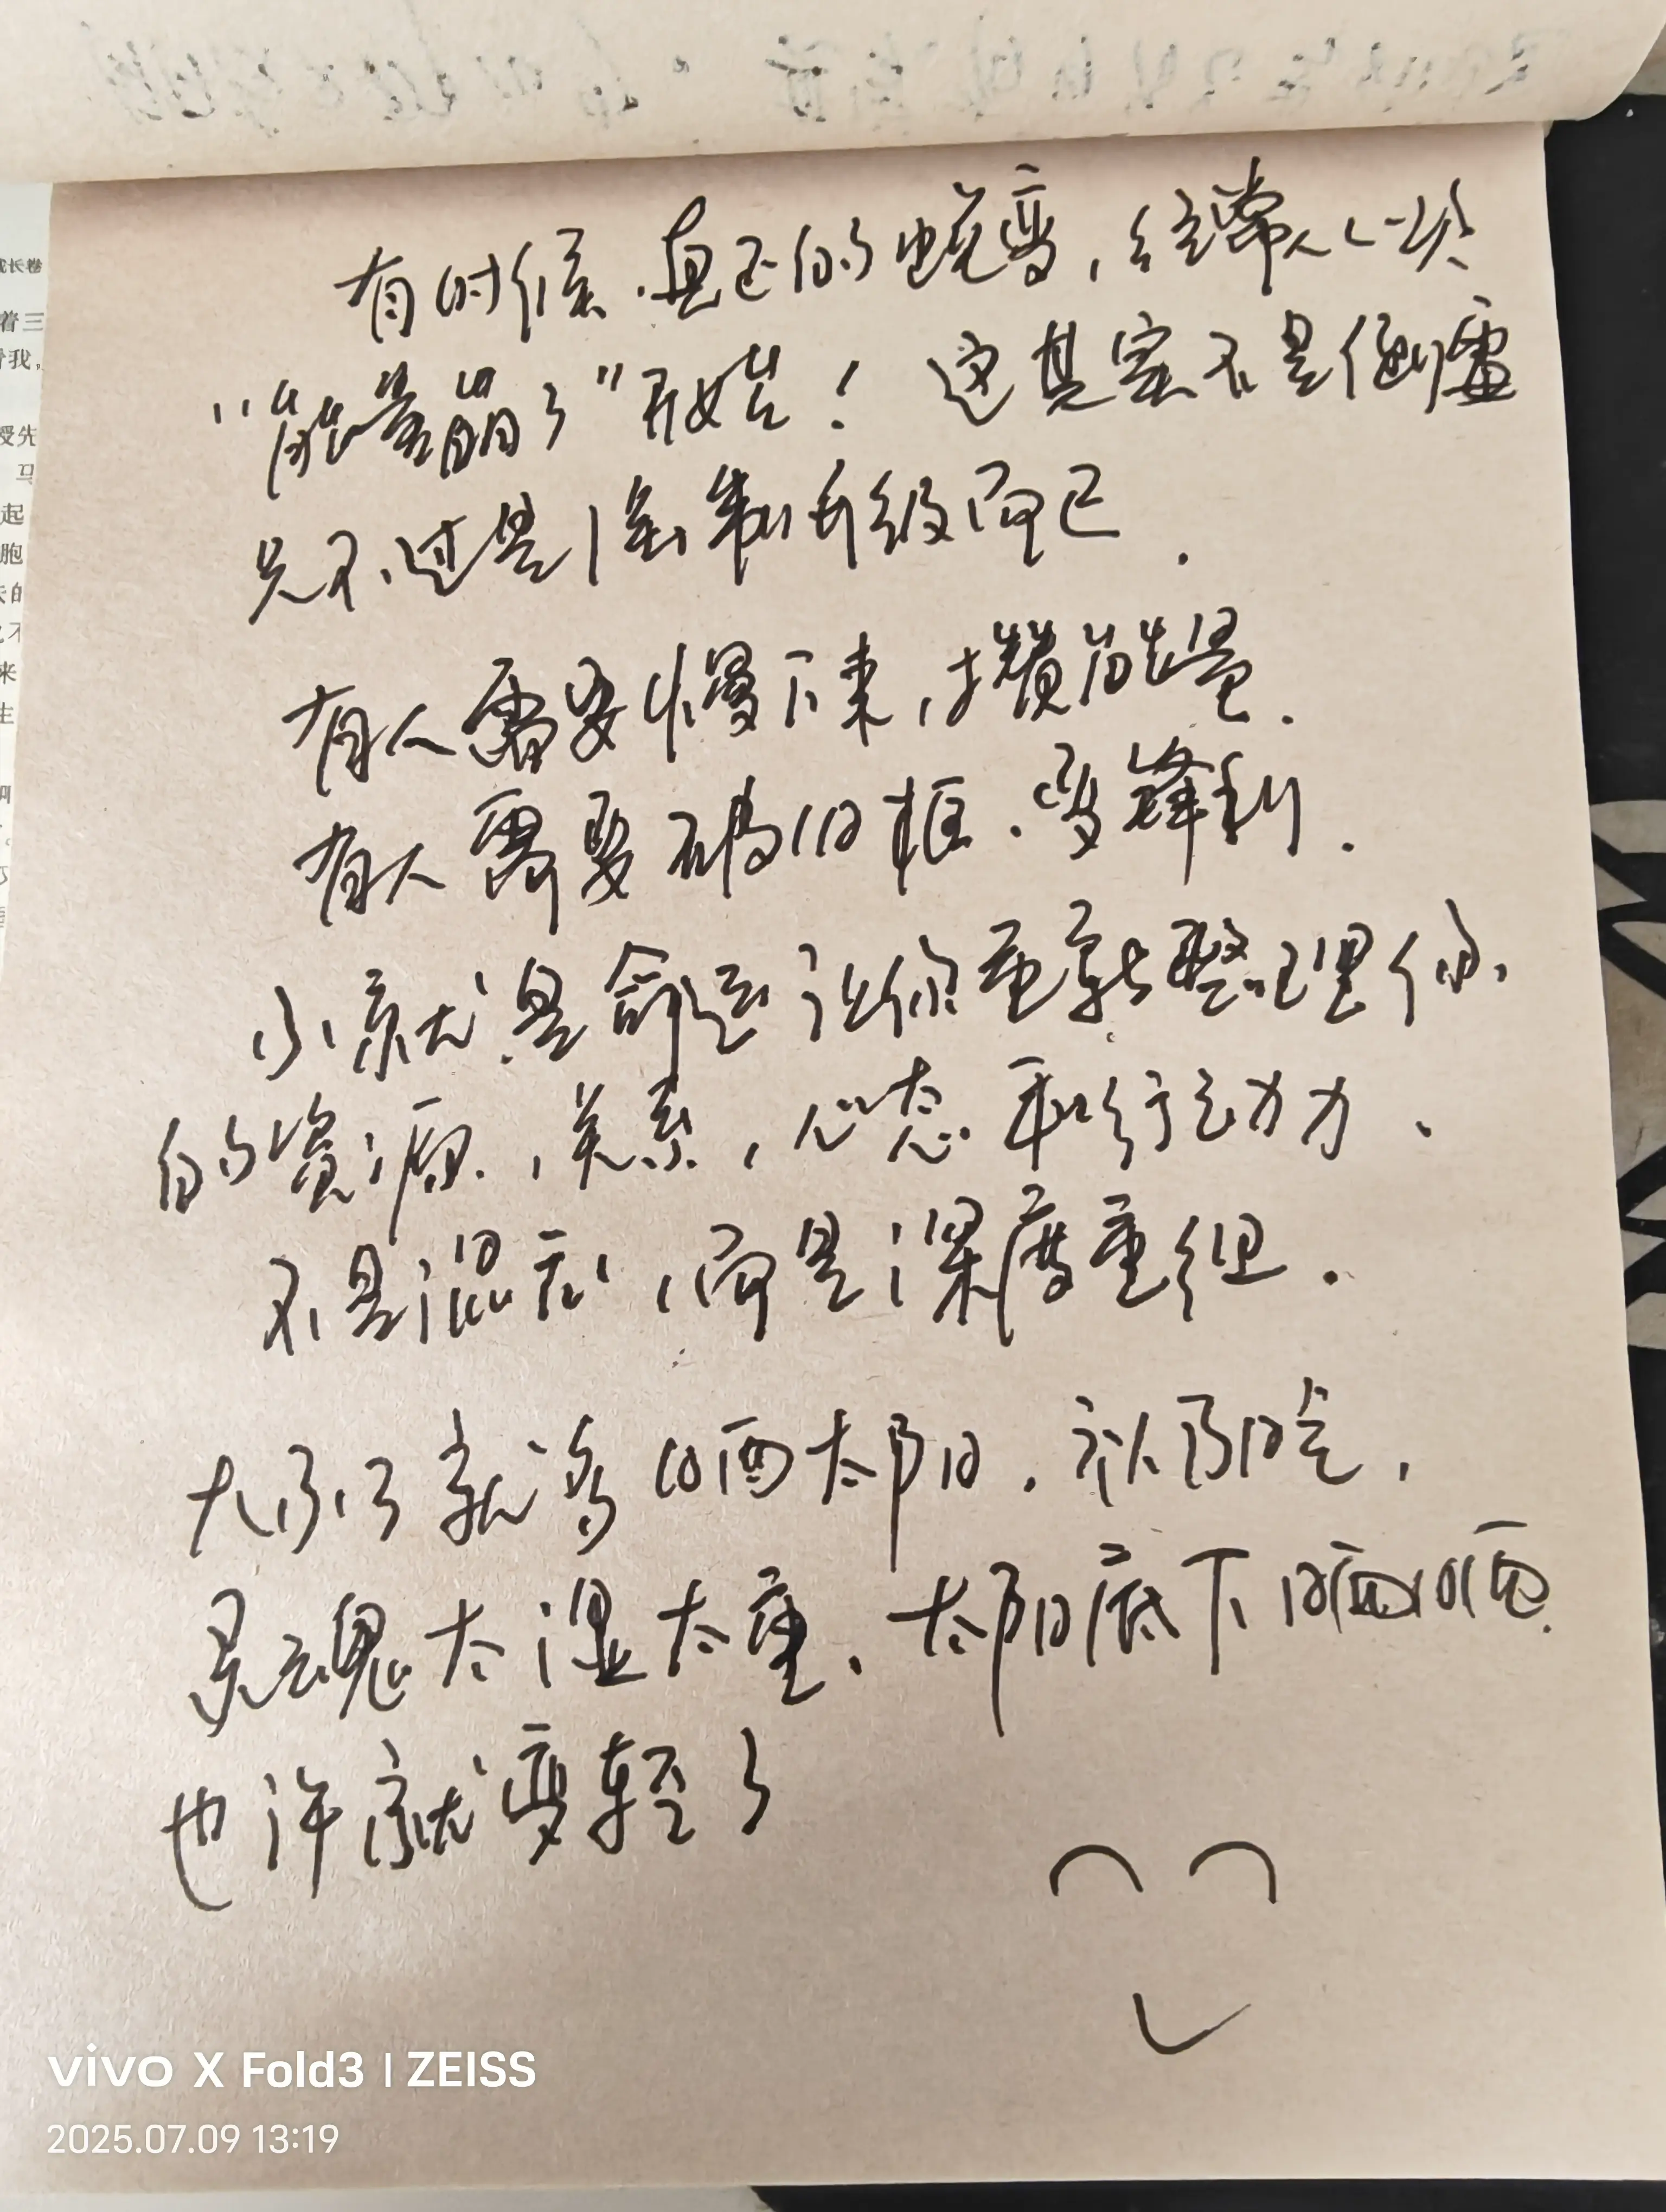 有时候,真正的蜕变,经常从一次
"能量崩了"开始!这其实不是倒霉
只不过是强制升级而已.
有人需要慢下来,攒能量.
有人需要破旧框.变锋利.
小就是命运让你重新整理你
的资源,关系,心态和行动力.
不是混乱,而是深度重组.
大不了就多晒太阳.补阳气,
灵魂太湿太重.太阳底下晒晒.
也许就变轻了
vivo X Fold3 | ZEISS
2025.07.09 13:19
成长卷
着三
我,
授先
马
起
胞
来
生